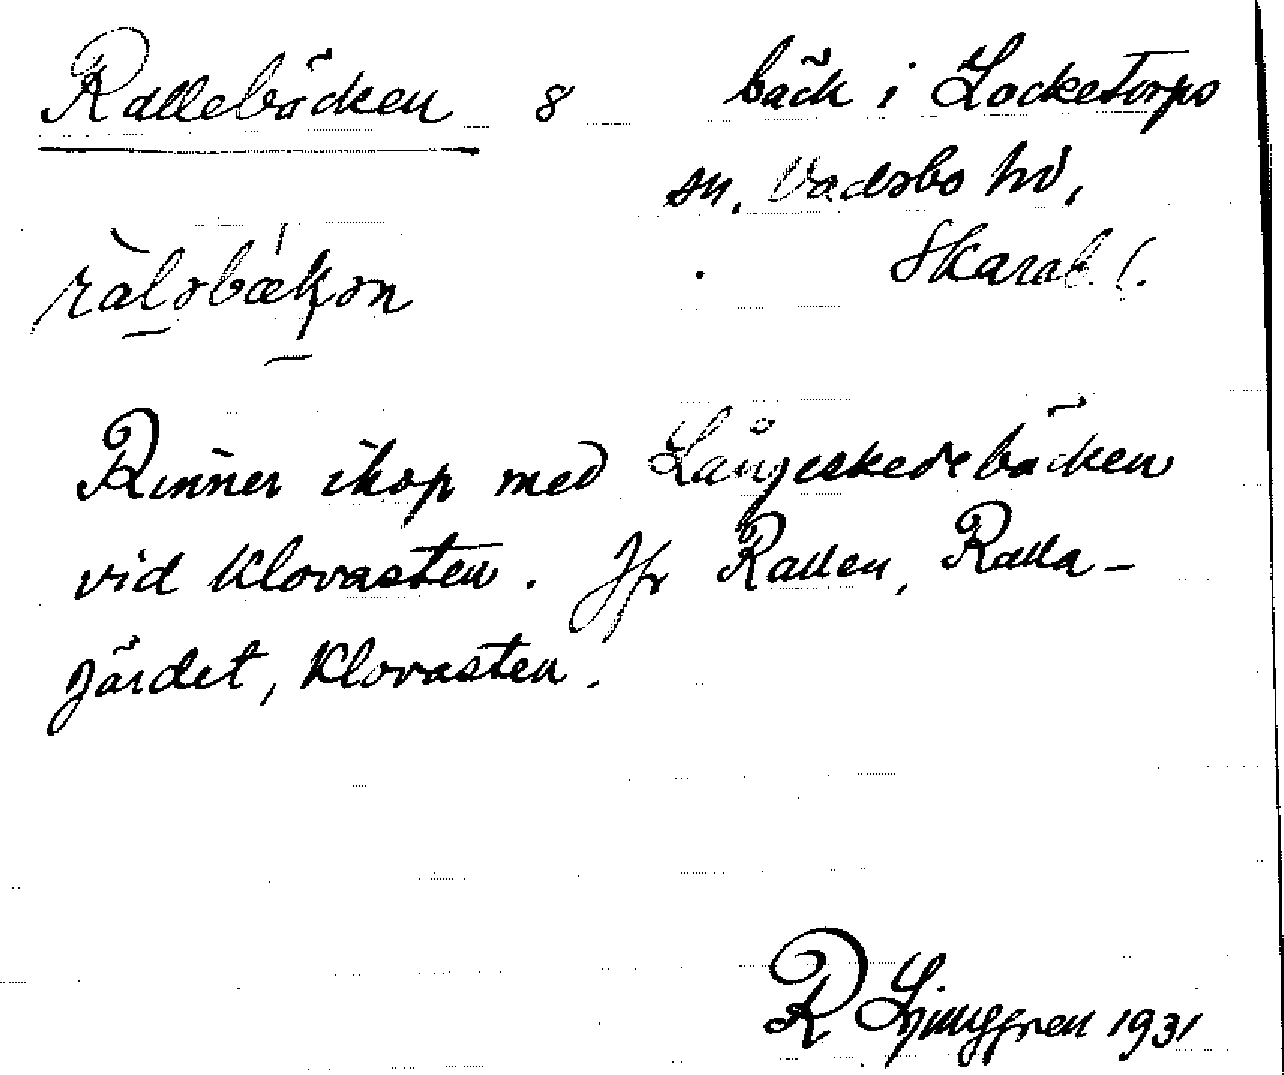 Rallebäcken 8 bäck i Locketorps
sn. Vadsbo hd,
Skarab. l.
Rinner ihop med Långeskedebäcken
vid Klovasten. Jfr Rallen, Ralla-
gärdet, Klovasten.
R Ljunggren 1931